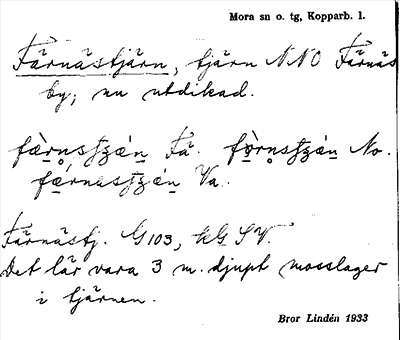 Mora sn o. tg, Kopparb. l.
Färnästjärn, tjärn NNO Färnäs
by; nu utdikad.
fæ̀rnsʃʒén Fä. fò̀rnsʃʒén No.
fǽrnasʃʒén Va.
Färnästj. G103, kG SV.
Det lär vara 3 m. djupt mosslager
i tjärnen.
Bror Lindén 1933